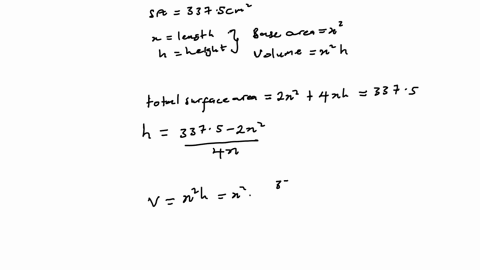 SA = 337.5cm²
x = length } Base area = x²
h = height } Volume = x²h
total surface area = 2x² + 4xh = 337.5
h = 337.5 - 2x²
4x
V = x²h = x².